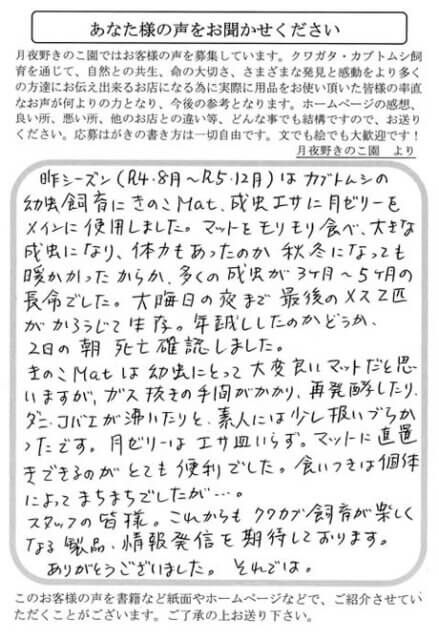 あなた様の声をお聞かせください
月夜野きのこ園ではお客様の声を募集しています。クワガタ・カブトムシ飼
育を通じて、自然との共生、命の大切さ、さまざまな発見と感動をより多く
の方達にお伝え出来るお店になる為に実際に用品をお使い頂いた皆様の率直
なお声が何よりの力となり、今後の参考となります。ホームページの感想、
良い所、悪い所、他のお店との違い等、どんな事でも結構ですので、お送り
ください。応募はがきの書き方は一切自由です。文でも絵でも大歓迎です！
月夜野きのこ園 より
昨シーズン（R4・8月～R5・12月）はカブトムシの
幼虫飼育にきのこMat、成虫エサに月ゼリーを
メインに使用しました。マットをモリモリ食べ、大きな
成虫になり、体力もあったのか秋冬になっても
暖かかったからか、多くの成虫が3ヶ月～5ヶ月の
長命でした。大晦日の夜まで最後のメス2匹
がかろうじて生存。年越ししたのかどうか、
2日の朝 死亡確認しました。
きのこMatは幼虫にとって大変良いマットだと思
いますが、ガス抜きの手間がかかり、再発酵したり、
ダニ、コバエが沸いたりと、素人には少し扱いづらか
ったです。月ゼリーはエサ皿いらず。マットに直置
きできるのがとても便利でした。食いつきは個体
によってまちまちでしたが…。
スタッフの皆様。これからもクワカブ飼育が楽しく
なる製品、情報発信を期待しております。
ありがとうございました。それでは。
このお客様の声を書籍など紙面やホームページなどで、ご紹介させてい
ただくことがございます。ご了承の上お送り下さい。